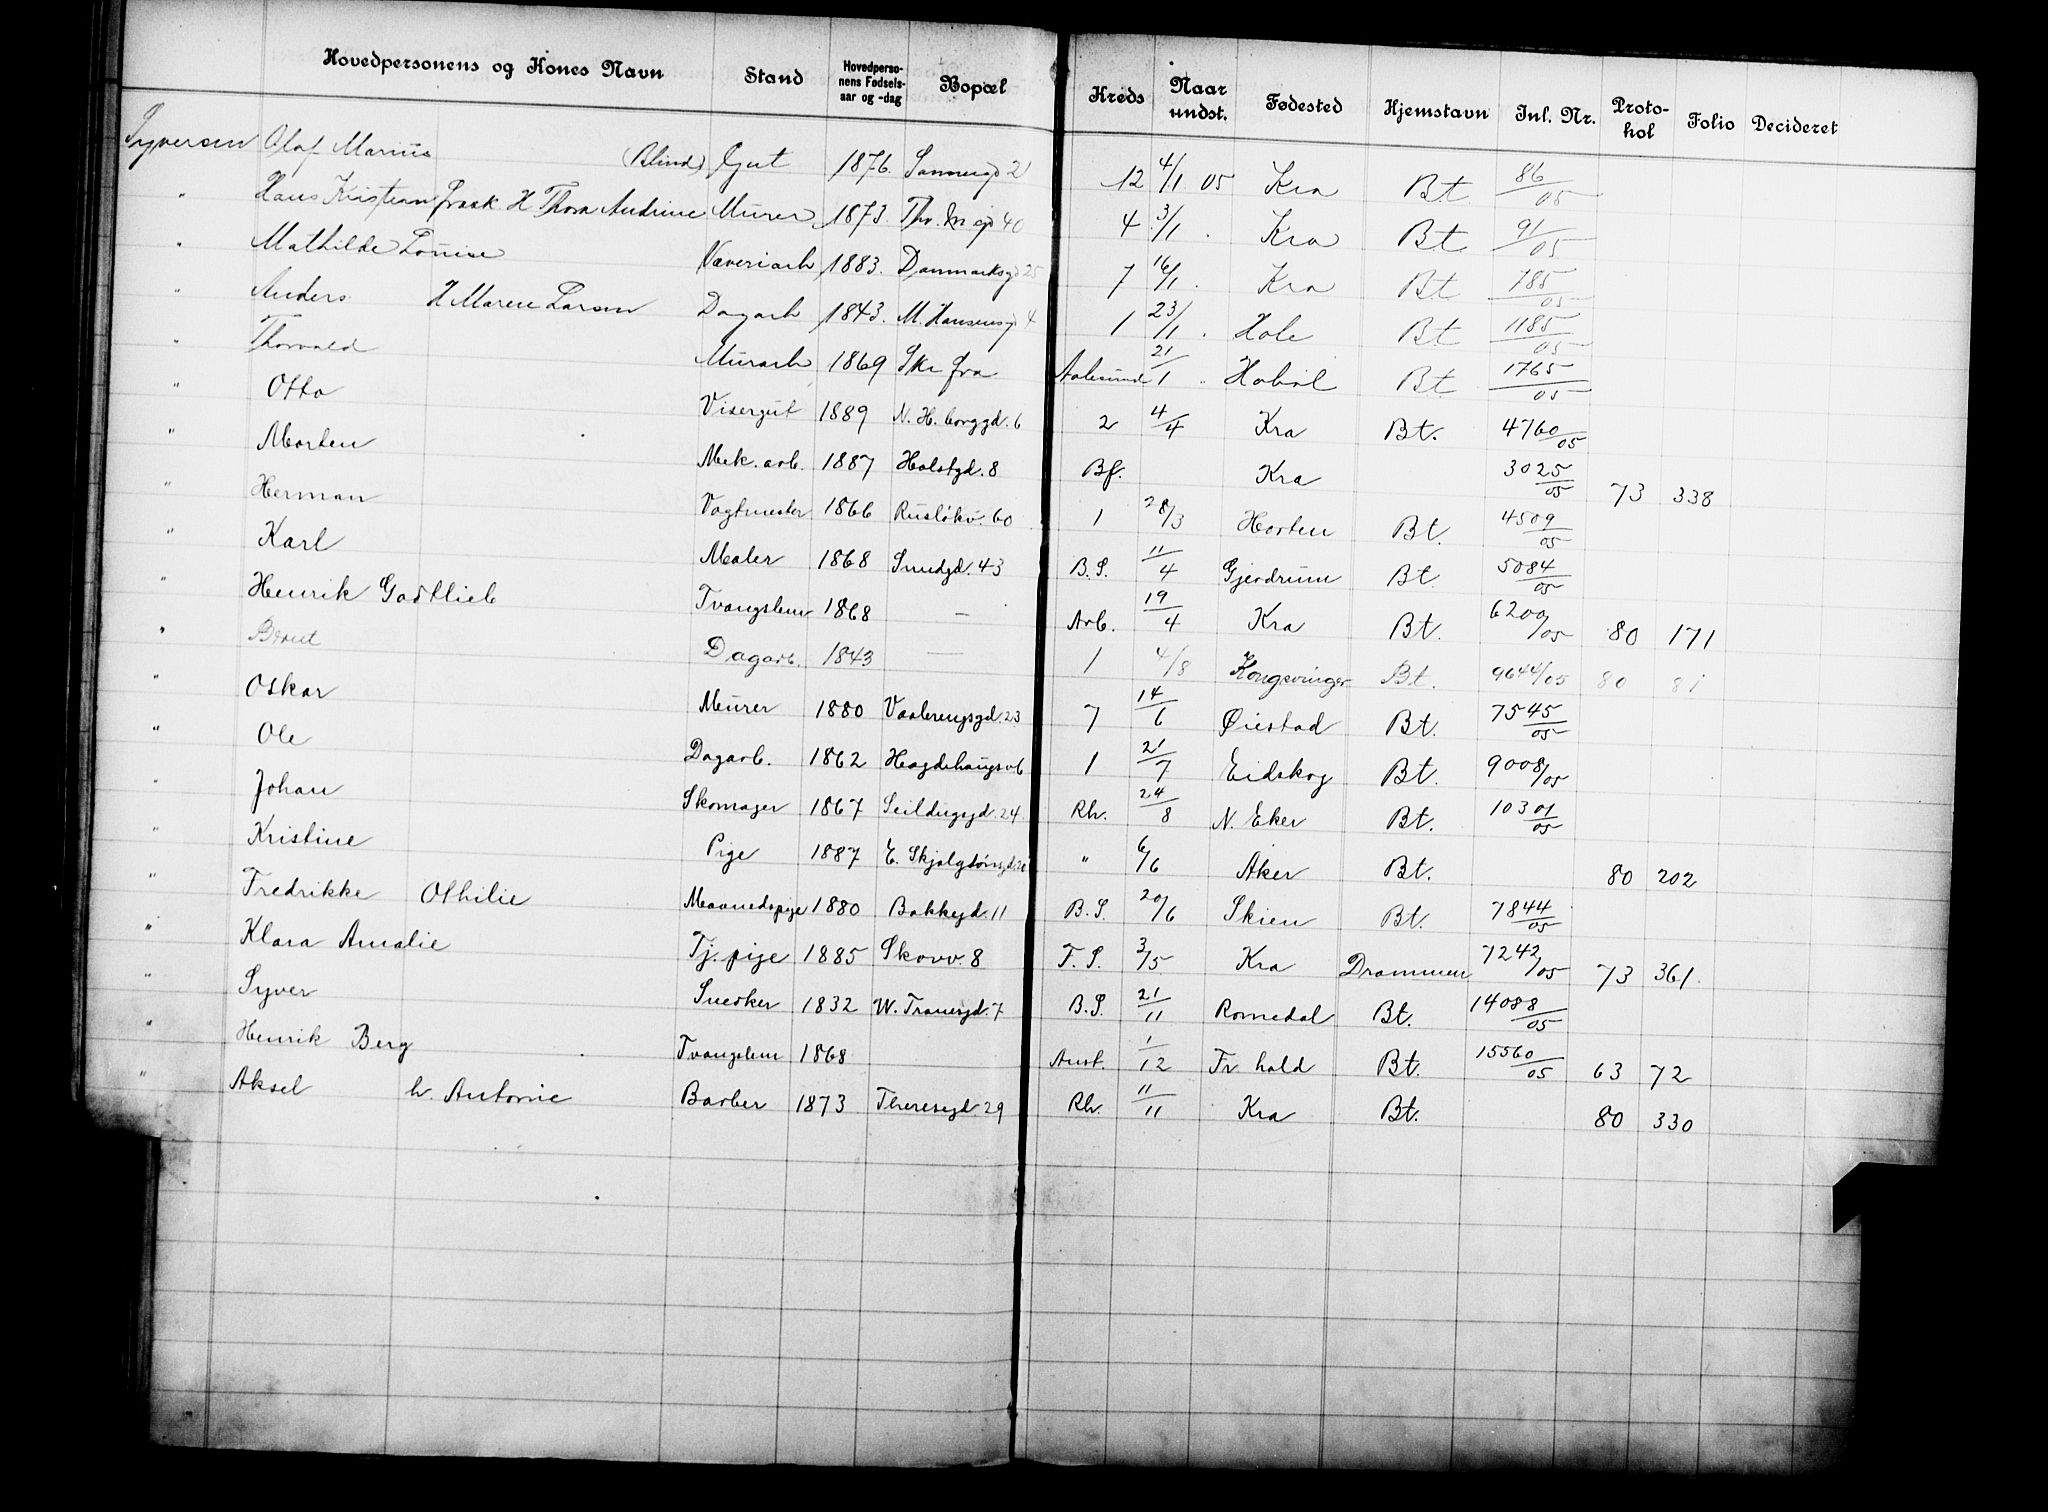 Hovedpersonens og Kones Navn Stand Hovedperso-nens Fødsels-aar og -dag Bopæl Kreds Naar undst. Fødested Hjemstavn Inl. Nr. Proto-kol Folio Decideret
Syversen Olaf Marius (Blind) Gut 1876. Sannergd 21 12 4/1 05 Kra Bt 86/05
" Hans Kristian Fraak H Thora Andrine Murer 1873. Thv. M gd 40 4 3/1 . Kra Bt 91/05
" Mathilde Louise Væveriarb 1883. Danmarksgd 25 7 16/1 . Kra Bt 785/05
" Anders H Maren Larsen Dagarb 1843. M. Hansensgd 4 1 23/1 . Hole Bt 1185/05
" Thorvald Murarb 1869 Skr fra Aalesund 21/1 . Hobøl Bt 1765/05
" Otto Visergut 1889 N. H. borggd. 6 2 4/4 Kra Bt. 4760/05
" Morten Mek. arb. 1887 Holstgd. 8 Bf. Kra 3025/05 73 338
" Herman Vagtmester 1866 Rusløkv. 60 1 28/3 Horten Bt. 4509/05
" Karl Maler 1868 Smedgd. 43 B.S. 11/4 Gjerdrum Bt 5084/05
" Henrik Gottlieb Tvangslem 1868 — Arb. 19/4 Kra Bt. 6200/05 80 171
" Bernt Dagarb. 1843 — 1 4/8 Kongsvinger Bt. 9644/05 80 81
" Oskar Murer 1880 Vaalerengsgd. 23 7 14/6 Øiestad Bt. 7545/05
" Ole Dagarb. 1862 Hægdehaugsv 6 1 21/7 Eidskog Bt. 9008/05
" Johan Skomager 1867 Seildugsgd. 24 Rh. 24/8 N. Eker Bt. 10301/05
" Kristine Pige 1887 E. Skjalgsønsgd 21 " 6/6 Aker Bt. 80 202
" Fredrikke Othilie Maanedspige 1880 Bakkegd. 11 B.S. 20/6 Skien Bt. 7844/05
" Klara Amalie Tj. pige 1885 Skovv. 8 F. S. 3/5 Kra Drammen 7242/05 73 361.
" Syver Snedker 1832 W. Thranesgd. 7 B.S. 21/11 Romedal Bt. 14088/05
" Henrik Berg Tvangslem 1868 Anst. 1/12 Fr hald Bt. 15560/05 63 72
" Aksel h. Antonie Barber 1873 Theresegd 29 Rh. 11/11 Kra Bt. 80 330